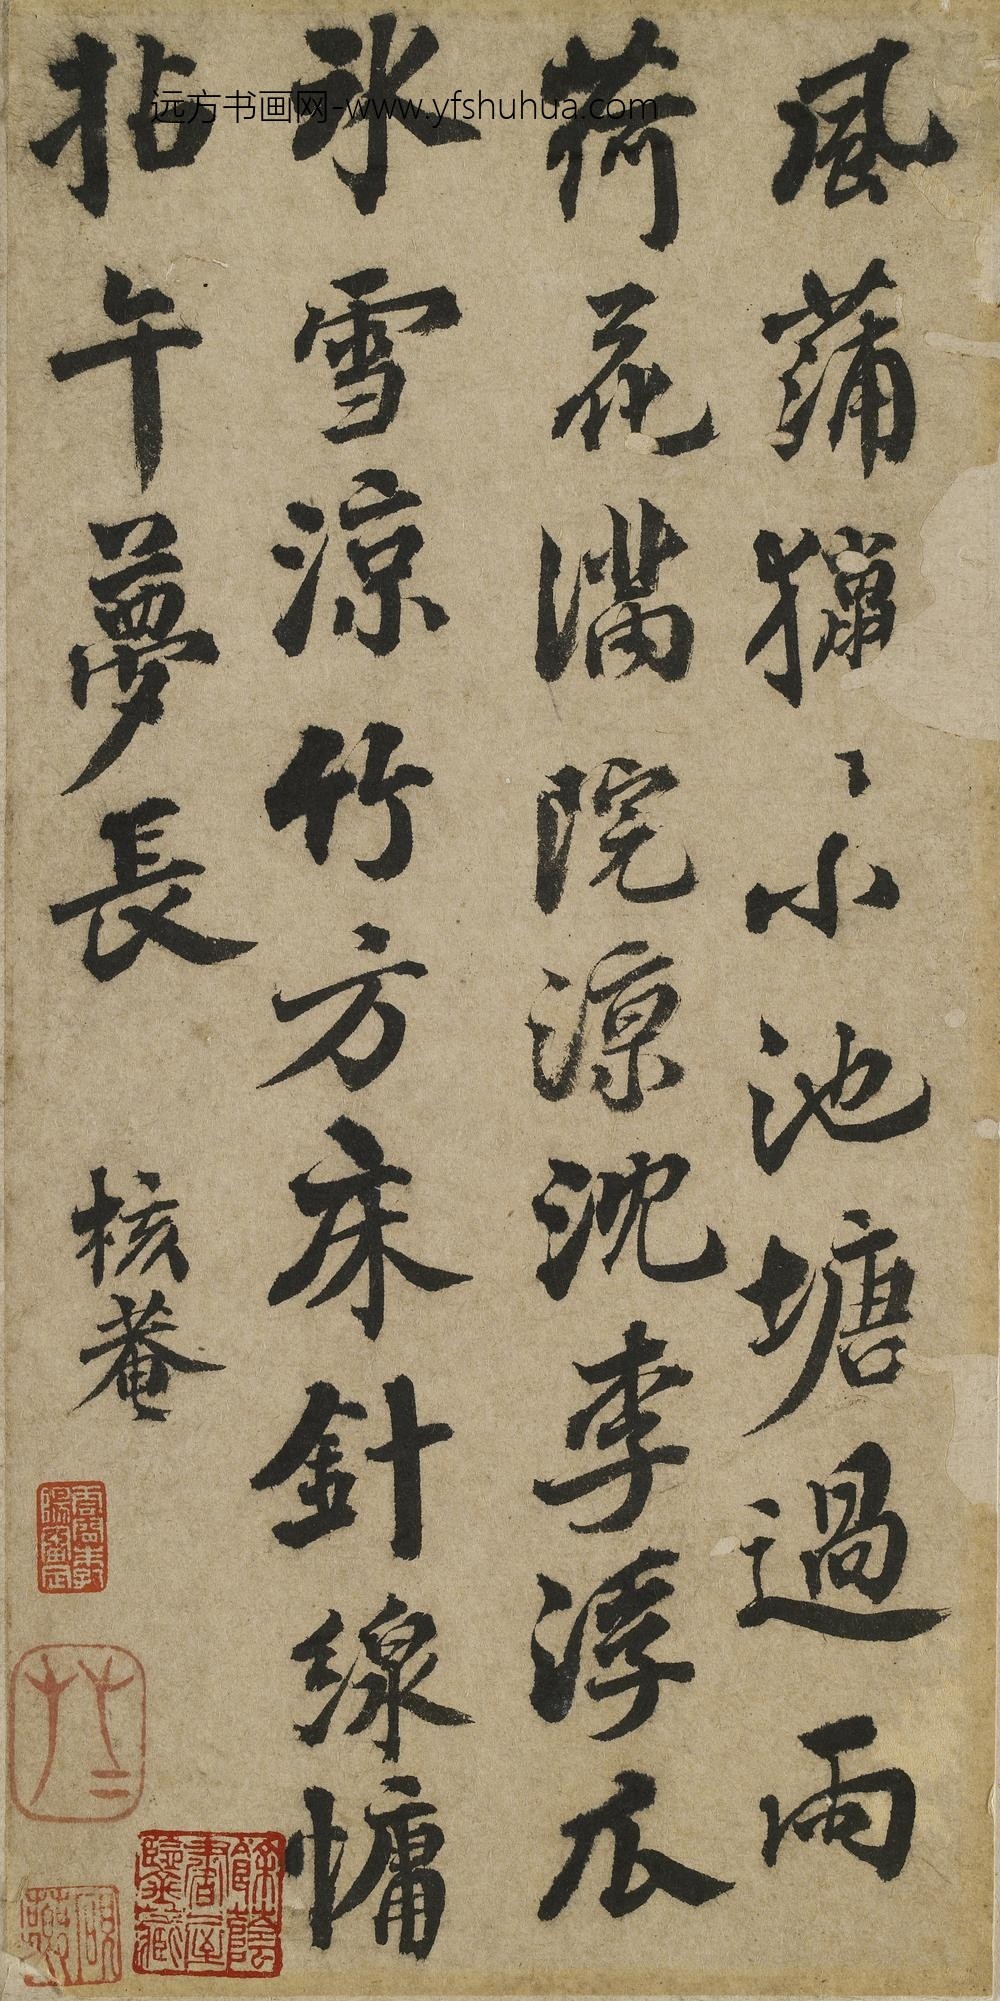 远方书画网-www.yfshuhua.com
風蒲獵〻小池塘過雨
荷花滿院涼沈李浮瓜
氷雪涼竹方床針線慵
拈午夢長
核菴